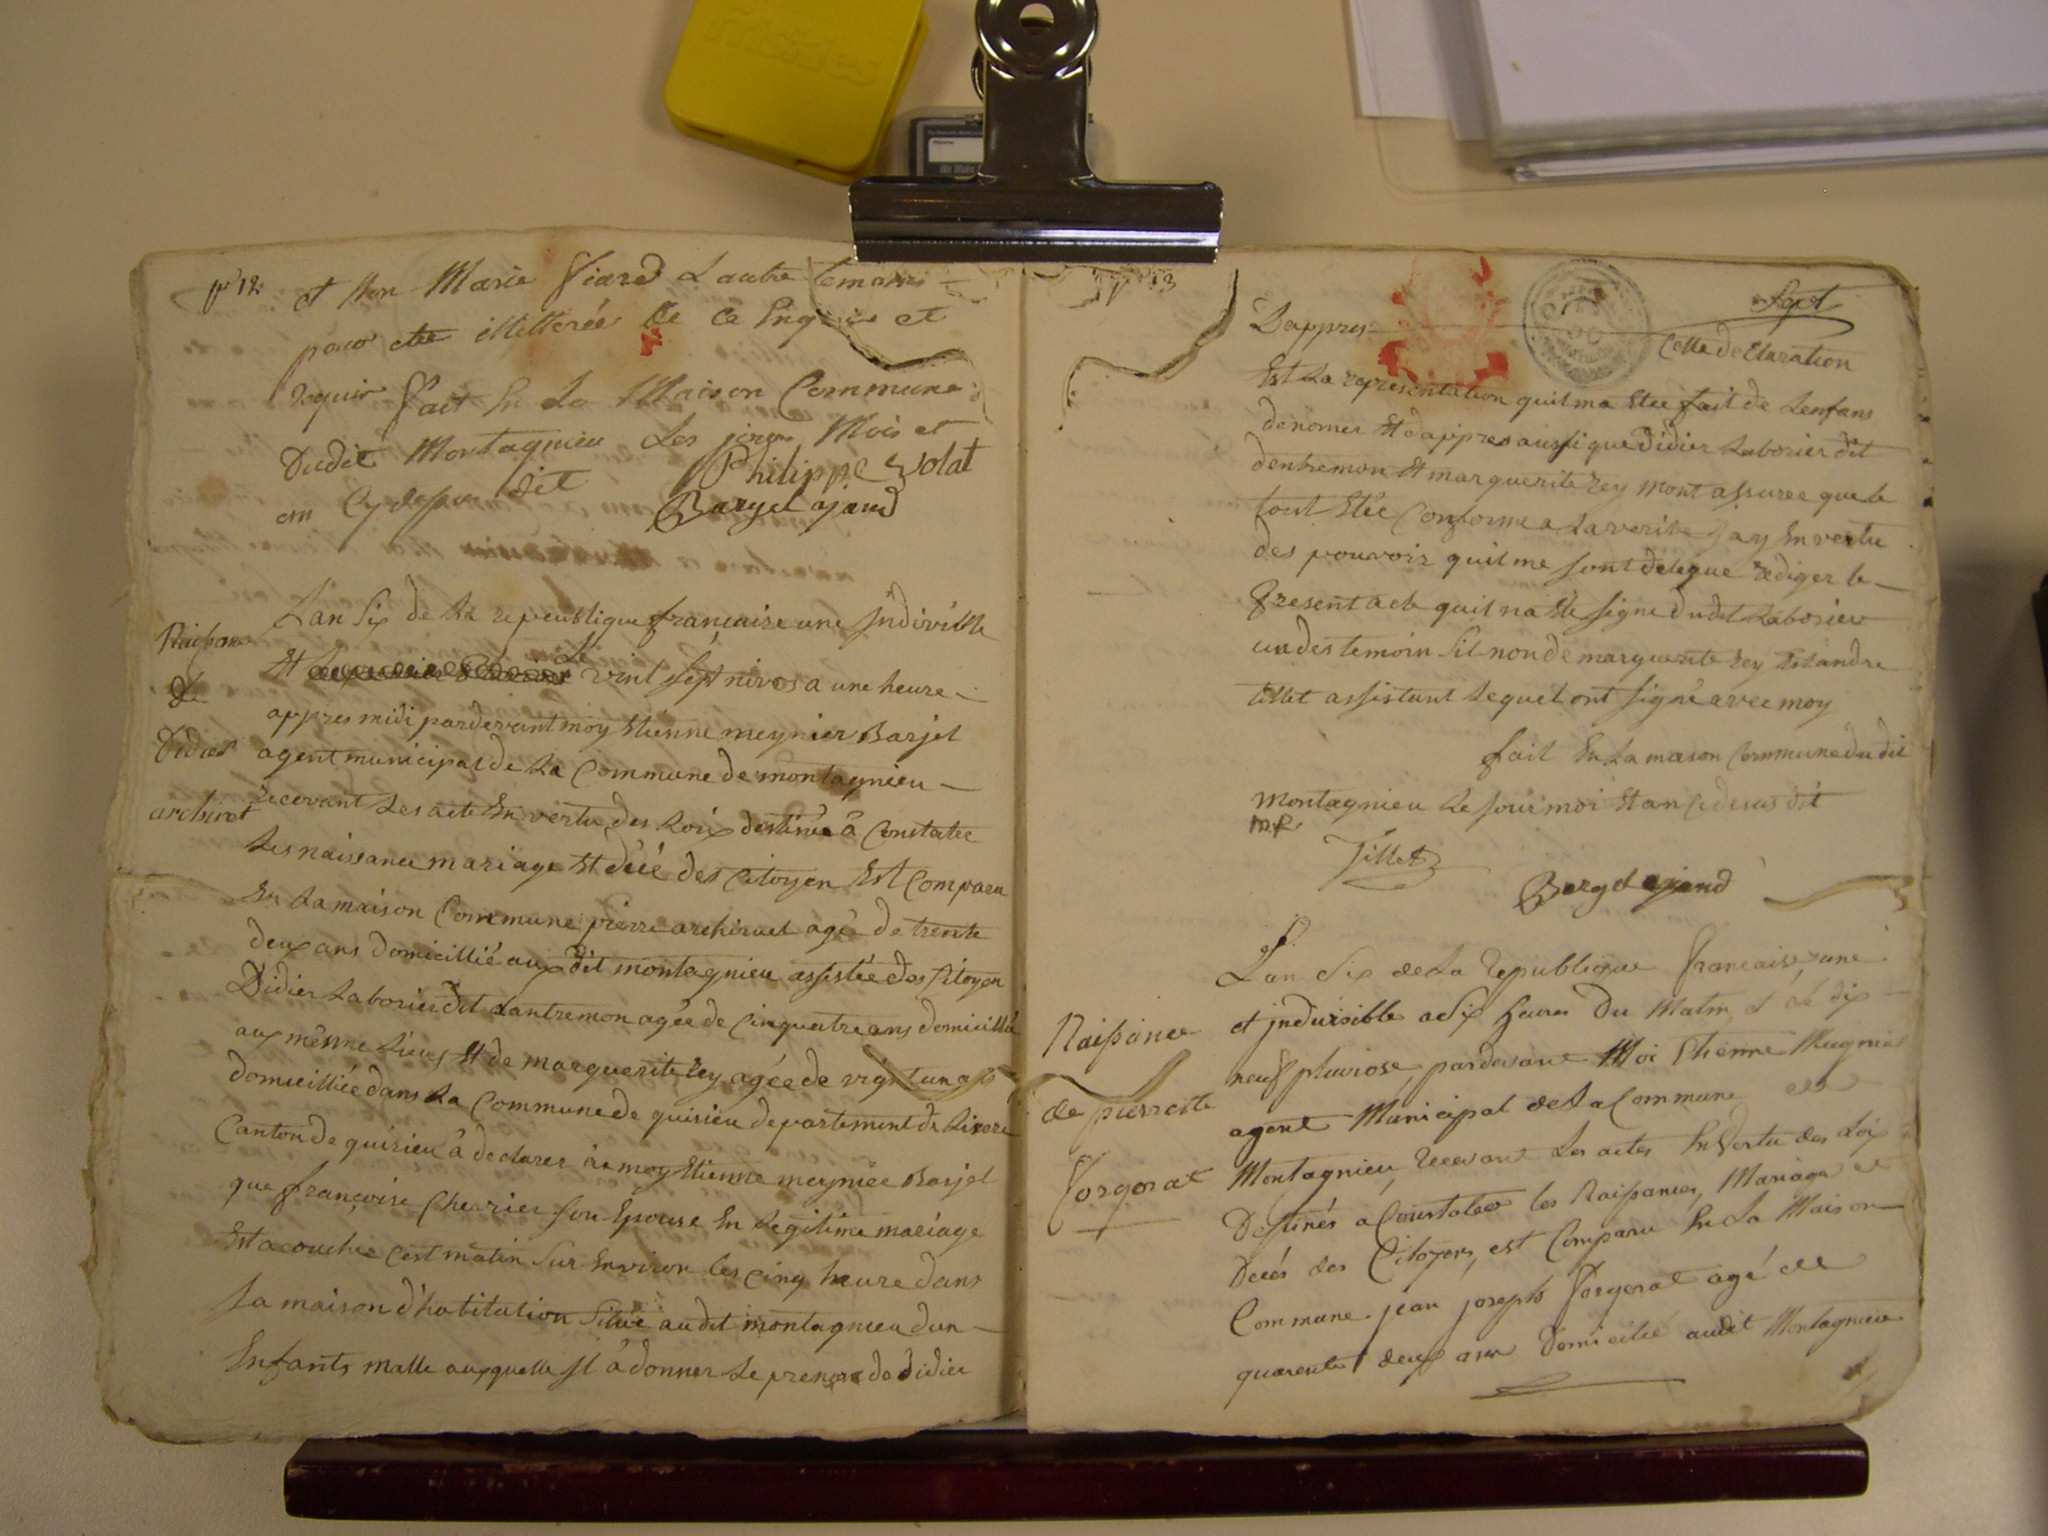 Friskies
pe 12
et non Marie Fiard Lautre temoins
pour etre illitterée de ce Enquis et
requis fait En La Maison Commune
Dudit Montagnieu Les jour Mois et
an Cy dessus dit Philippe Volat
Barjel ajand
Naissance
de
Didier
archiret
Lan Six de La republique française une Indivisible
Et Le vint Sept nivos a une heure
appres midi pardevant moy Etienne meynier Barjel
agent municipal de La Commune de montagnieu
recevant Les acte En vertu des Loix destinée â Constatee
Les naissance mariage Et décé des Citoyen Est Comparu
En La maison Commune pierre archiruet agé de trente
deux ans domicillié aux dit montagnieu assistée des Citoyen
Didier Laborier dit dantremon agée de Cinquatre ans domicillié
aux même Lieus Et de marguerite rey agée de vignt un ans
domicilliée dans La Commune de quirieu departement de Lizere
Canton de quirieu â declarer à moy Etienne meyniée Barjel
que françoise Chevrier son Epouse En Legitime mariage
Est acouchée cest matin Sur Environ les Cinq heure dans
sa maison d'habitation Situé audit montagnieu dun
Enfants malle auxquelle Il â donner Le prenom de didier
13
Sept
Dappres cette declaration
Est La representation quil ma Etee fait de Lenfans
denomer Et dappres aussi que didier Laborier dit
dentremon Et marguerite rey mont assuree que le
tout Etée Conforme a La verite Jay En vertu
des pouvoir quil me sont delegue rediger le
present acte quil na Ete signe dudit Laborier
un des temoin Sil non de marguerite rey Et andre
tillet assistant Lequel ont signé avec moy
fait En La maison Commune du dit
montagnieu Le Jour moi Et an cidesus dit
m.r.
Tillet
Barjel ajand
Naissance
de pierrette
Forgerat
Lan Six de La Republique française, une
et indivisible a Six heures Du Matin, et Le dix
neuf pluviose, pardevant Moi Etienne Mugnier
agent Municipal de La Commune de
Montagnieu, recevant Les actes En Vertu des Loix
Destinés a Constater les Naissances, Mariage et
Décés des Citoyens, est Comparu En La Maison
Commune jean joseph Forgerat agé de
quarente deux ans Domicilié audit Montagnieu